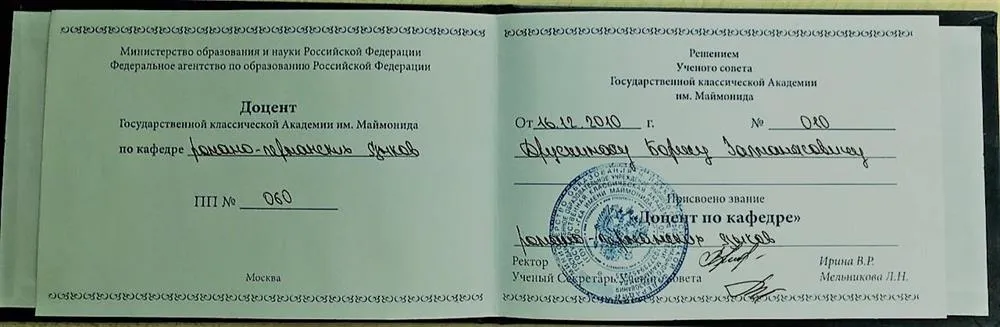 Министерство образования и науки Российской Федерации
Федеральное агентство по образованию Российской Федерации
Доцент
Государственной классической Академии им. Маймонида
по кафедре романо-германских языков
ПП № 060
Москва
Решением
Ученого совета
Государственной классической Академии
им. Маймонида
От 16.12.2010 г. № 020
Борису
Присвоено звание
«Доцент по кафедре»
романо-германских языков
Ректор Ирина В.Р.
Ученый Секретарь Ученого совета Мельникова Л.Н.